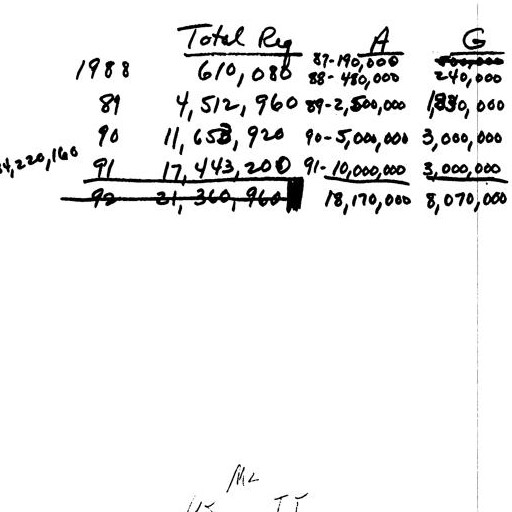 Total Req A G
87-190,000
1988 610,080 88-480,000 240,000
89 4,512,960 89-2,500,000 1,830,000
90 11,653,920 90-5,000,000 3,000,000
34,220,160 91 17,443,200 91-10,000,000 3,000,000
92 21,360,960 18,170,000 8,070,000